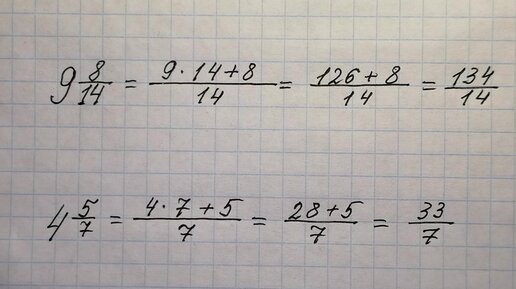 9 8/14 = (9·14+8)/14 = (126+8)/14 = 134/14
4 5/7 = (4·7+5)/7 = (28+5)/7 = 33/7